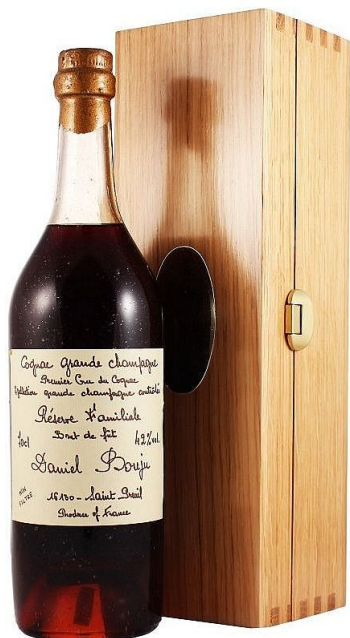 Cognac grande champagne
Premier Cru du Cognac
Appellation grande champagne contrôlée
Réserve Familiale
Brut de fût
70cl 42%vol.
Daniel Bouju
NON FILTRÉ
16130 - Saint Preuil
Produce of France